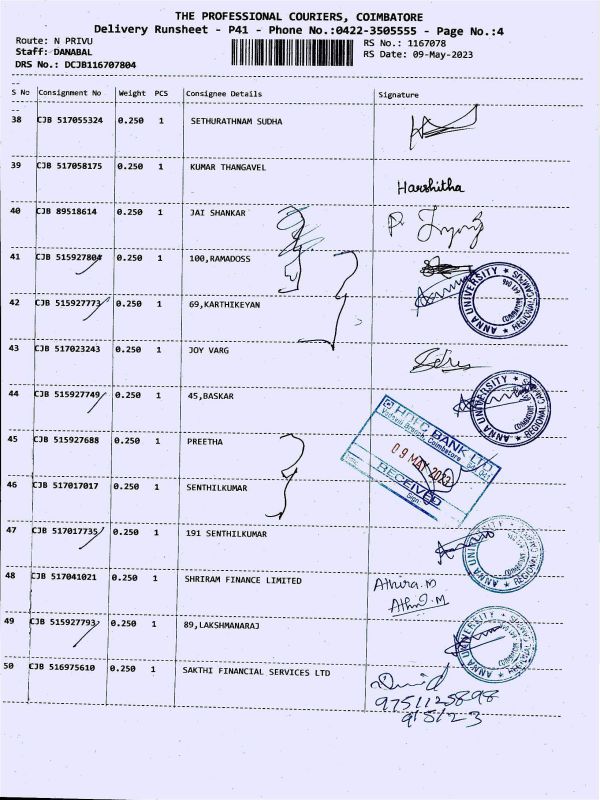 THE PROFESSIONAL COURIERS, COIMBATORE
Delivery Runsheet - P41 - Phone No.:0422-3505555 - Page No.:4
Route: N PRIVU
RS No.: 1167078
Staff: DANABAL
RS Date: 09-May-2023
DRS No.: DCJB116707804
S No Consignment No Weight PCS Consignee Details Signature
38 CJB 517055324 0.250 1 SETHURATHNAM SUDHA
39 CJB 517058175 0.250 1 KUMAR THANGAVEL
Harshitha
40 CJB 89518614 0.250 1 JAI SHANKAR
41 CJB 515927804 0.250 1 100,RAMADOSS
42 CJB 515927773 0.250 1 69,KARTHIKEYAN
ANNA UNIVERSITY * REGIONAL CAMPUS *
COIMBATORE
43 CJB 517023243 0.250 1 JOY VARG
44 CJB 515927749 0.250 1 45,BASKAR
ANNA UNIVERSITY * REGIONAL CAMPUS
COIMBATORE
45 CJB 515927688 0.250 1 PREETHA
HDFC BANK LTD
09 MAY 2023
RECEIVED
Sign
46 CJB 517017017 0.250 1 SENTHILKUMAR
47 CJB 517017735 0.250 1 191 SENTHILKUMAR
ANNA UNIVERSITY * REGIONAL CAMPUS
48 CJB 517041021 0.250 1 SHRIRAM FINANCE LIMITED
Athira.M
49 CJB 515927793 0.250 1 89,LAKSHMANARAJ
ANNA UNIVERSITY * REGIONAL CAMPUS
50 CJB 516975610 0.250 1 SAKTHI FINANCIAL SERVICES LTD
9751125898
9/5/23